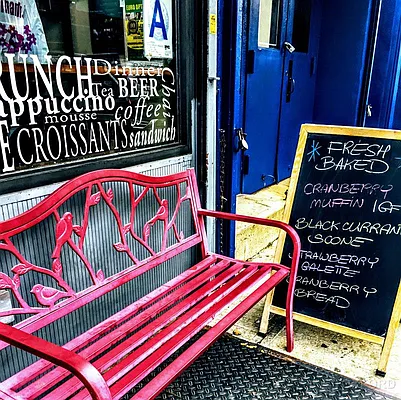 A
RUNCH Dinner
Tea BEER
appuccino coffee
mousse Chai
E CROISSANTS sandwich
* FRESH
BAKED
CRANBERRY
MUFFIN 1GF
BLACKCURRAN
SCONE
STRAWBERRY
GALETTE
CRANBERRY
BREAD